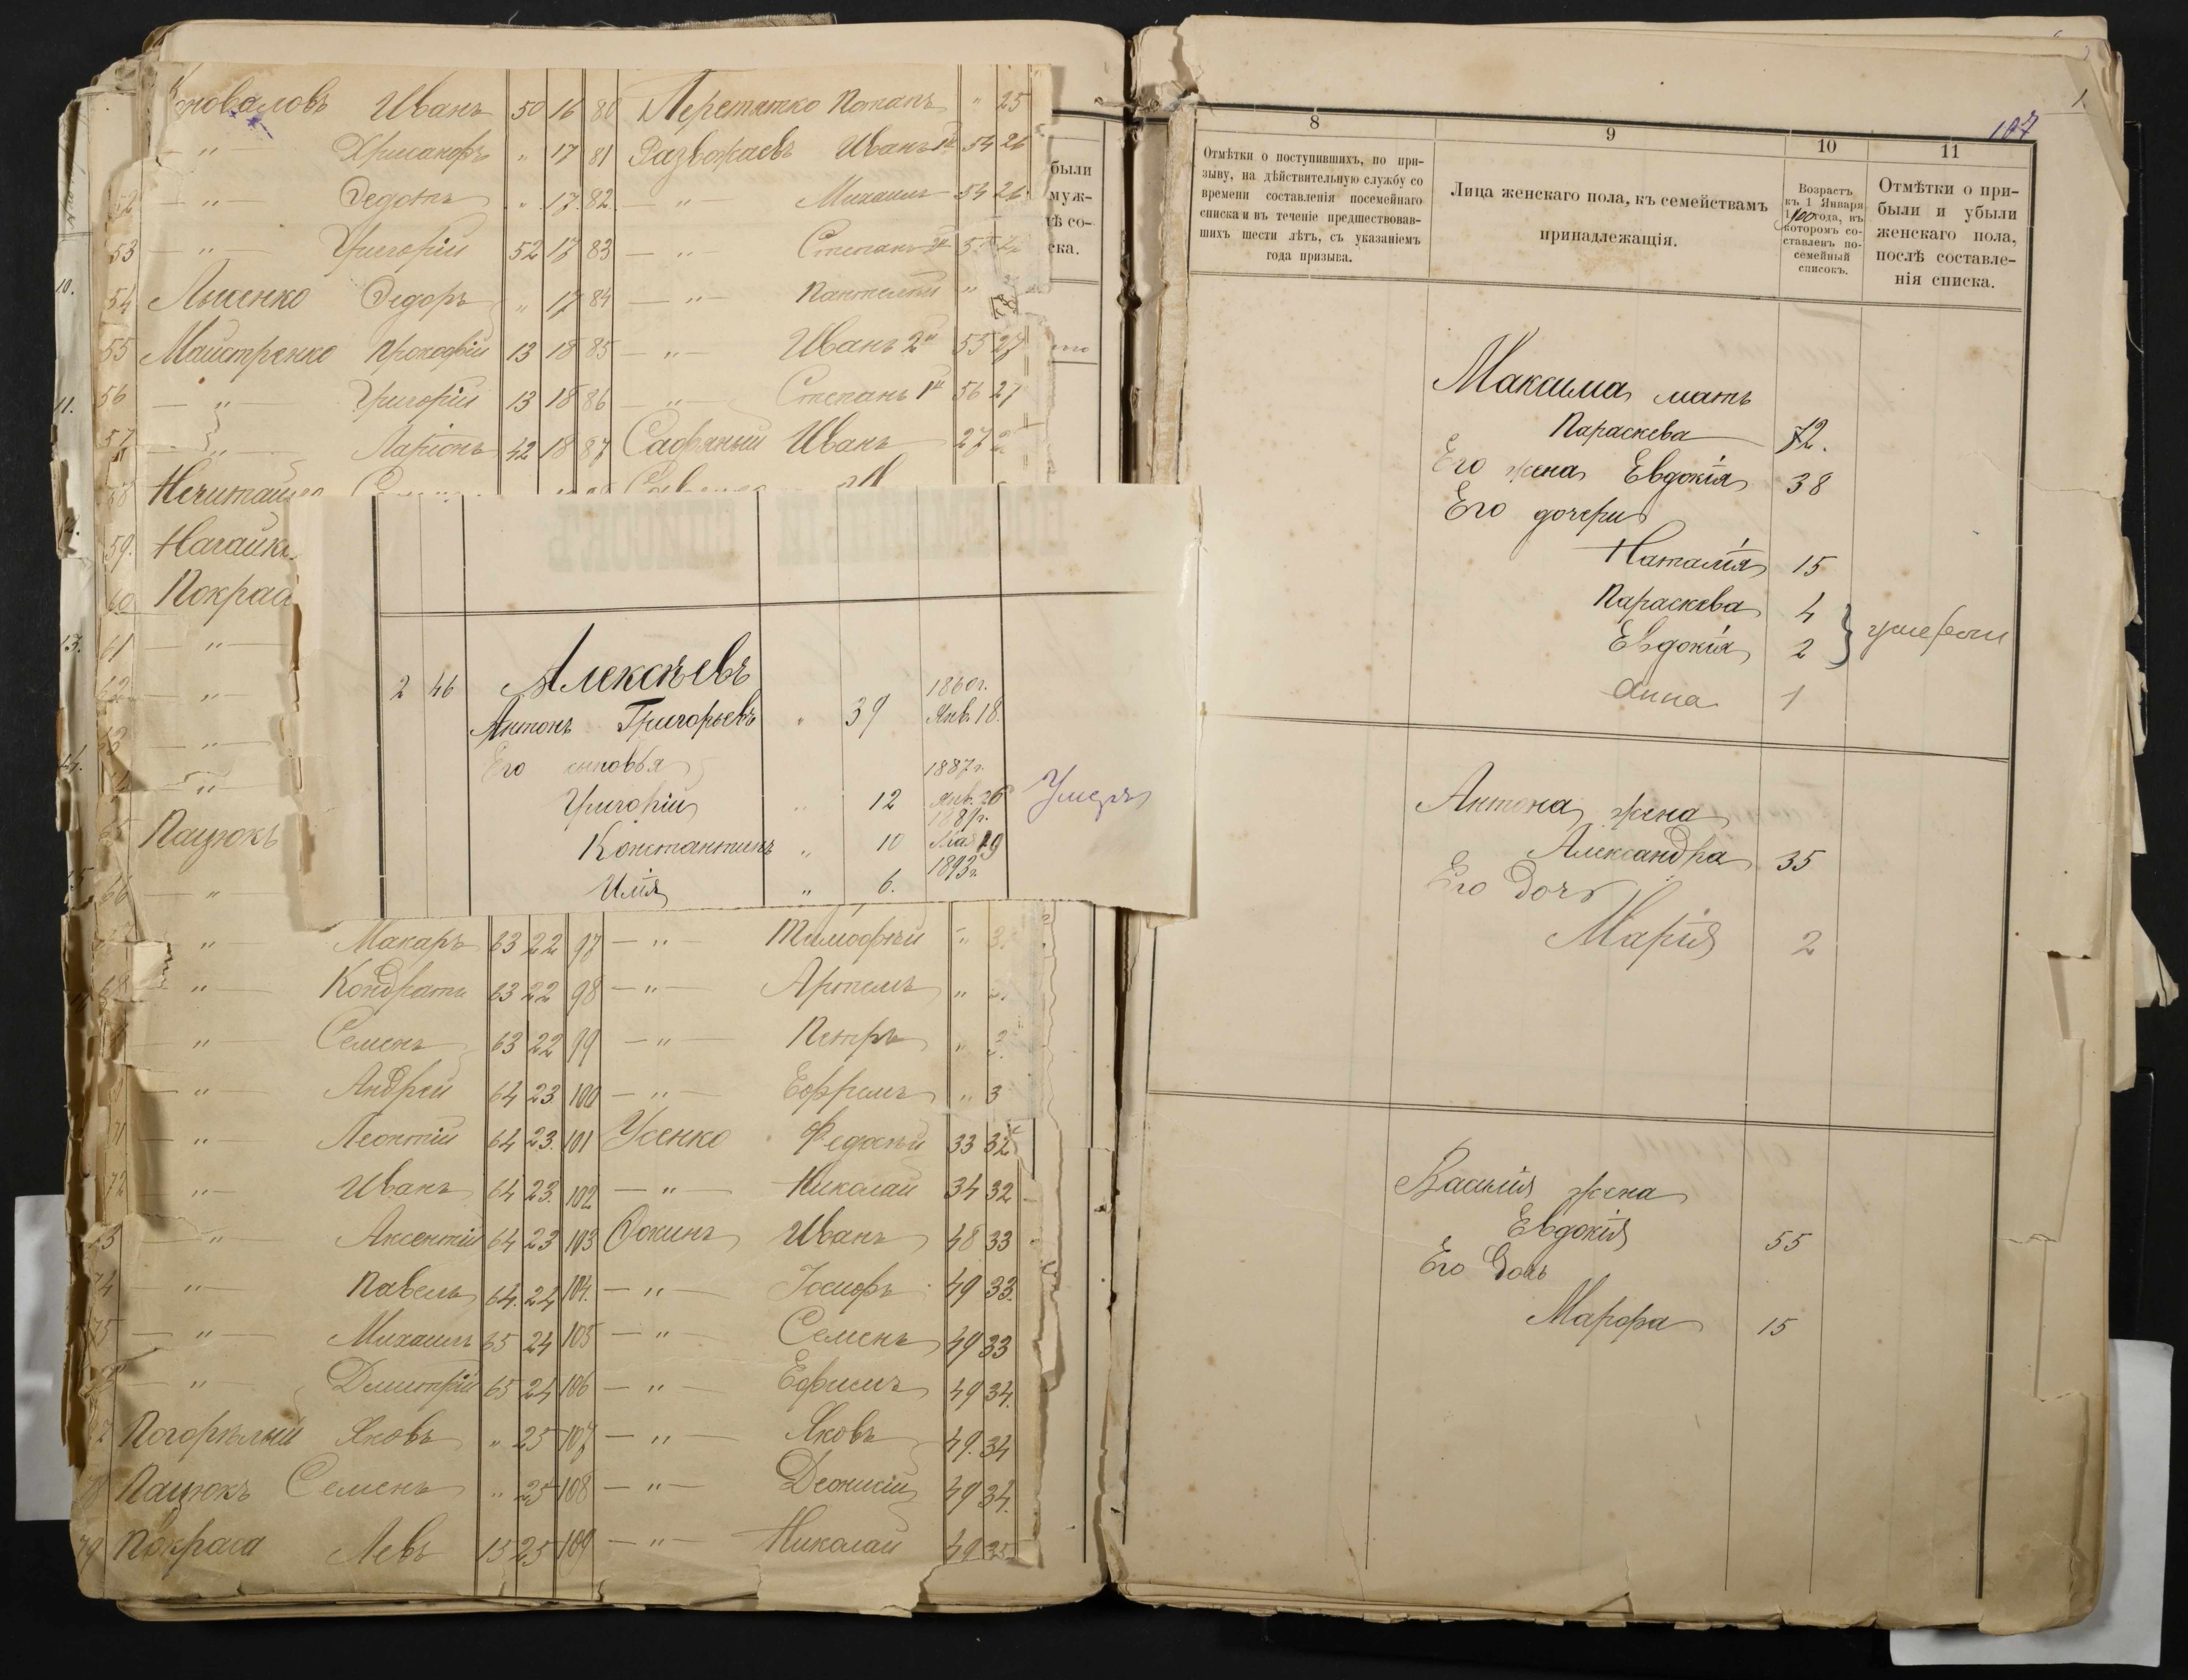 Коноваловъ Иванъ 50 16 80 Перетятко Потапъ " 25
— " — Хрисанфъ " 17 81 Развожаевъ Иванъ 1й 54 26
52 — " — Федотъ " 17. 82. — " — Михаилъ 54 26
53 — " — Григорій 52 17 83 — " — Степанъ 2й
54 Лысенко Федоръ " 17 84 — " — Пантелей "
55 Майстренко Прокофій 13 18 85 — " — Иванъ 2й 55 27
56 — " — Григорій 13 18 86 — " — Степанъ 1й 56 27
57 — " — Ларіонъ 42 18 87 Сафяный Иванъ 27
58
59. Нагайк
60 Покрас
61 — " —
62 — " —
63 — " —
— " —
65 Пацюкъ
66 — "
10.
11.
13.
были
муж-
ѣ со-
ска.
2 46 Алексѣевъ
Антонъ Григорьевъ " 39 1860г. Янв. 18.
Его сыновья
Григорій " 12 1887г. Янв. 26 Умеръ
Константинъ " 10 Мая 19
Илія " 6. 1893г.
" Макаръ 63 22 97 — " — Тимофей "
68 — " — Кондратъ 63 22 98 — " — Артемъ "
" Семенъ 63 22 99 — " — Петръ "
— " — Андрей 64 23 100 — " — Ефремъ " 3
71 — " — Леонтій 64 23. 101 Усенко Федосѣй 33 32
72 — " — Иванъ 64 23. 102 — " — Николай 34 32
— " — Аксентій 64 23 103 Фокинъ Иванъ 48 33
74 " Павелъ 64. 24 104. — " — Іосифъ 49 33.
75 — " — Михаилъ 65 24 105 — " — Семенъ 49 33
— " — Дмитрій 65 24 106 — " — Ефимъ 49 34.
Погорѣлый Яковъ " 25 107 — " — Яковъ 49. 34
78 Пацюкъ Семенъ " 25 108 — " — Деонисій 49 34.
79 Покраса Левъ 15 25 109 — " — Николай 49 35
107
8 9 10 11
Отмѣтки о поступившихъ, по при-
зыву, на дѣйствительную службу со
времени составленія посемейнаго
списка и въ теченіе предшествовав-
шихъ шести лѣтъ, съ указаніемъ
года призыва.
Лица женскаго пола, къ семействамъ
принадлежащія.
Возрастъ
къ 1 Января
1900 года, въ
которомъ со-
ставленъ по-
семейный
списокъ.
Отмѣтки о при-
были и убыли
женскаго пола,
послѣ составле-
нія списка.
Максима мать
Параскева 72.
Его жена Евдокія 38
Его дочери
Наталія 15
Параскева 4
Евдокія 2 } умерли
Анна 1
Антона жена
Александра 35
Его дочь
Марія 2
Василія жена
Евдокія 55
Его дочь
Марфа 15